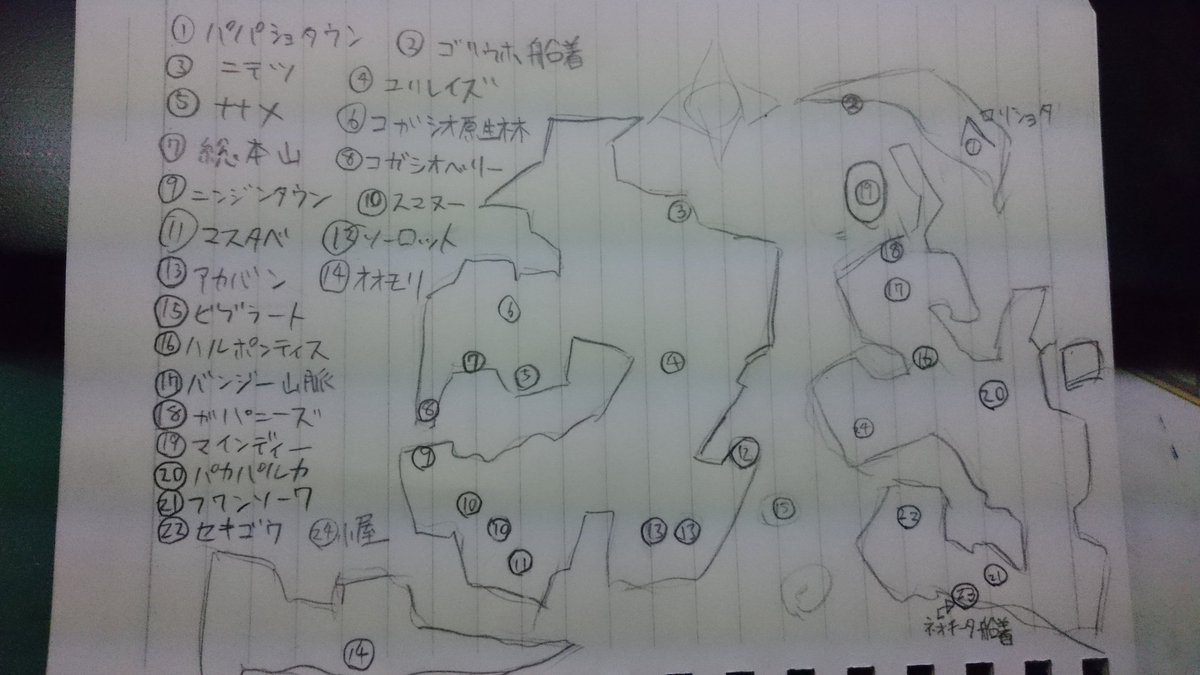 ① パパショタウン ② ゴリウホ船着
③ ニテツ ④ ユリレイズ
⑤ ナナメ ⑥ コガシオ原生林
⑦ 総本山 ⑧ コガシオベリー
⑨ ニンジンタウン ⑩ スマヌー
⑪ マスタベ ⑫ ソーロット
⑬ アカバン ⑭ オオモリ
⑮ ビブラート
⑯ ハルポンティス
⑰ バンジー山脈
⑱ ガパニーズ
⑲ マインディー
⑳ パカパルカ
㉑ フワンソーワ
㉒ セキゴウ ㉔ 小屋
②
ロリショタ
①
⑲
③
⑱
⑰
⑥
⑦
⑤
④
⑯
⑳
⑧
㉔
⑨
⑫
⑩
⑮
㉒
⑩
⑬ ⑬
⑪
㉑
㉓
ネオキータ船着
⑭